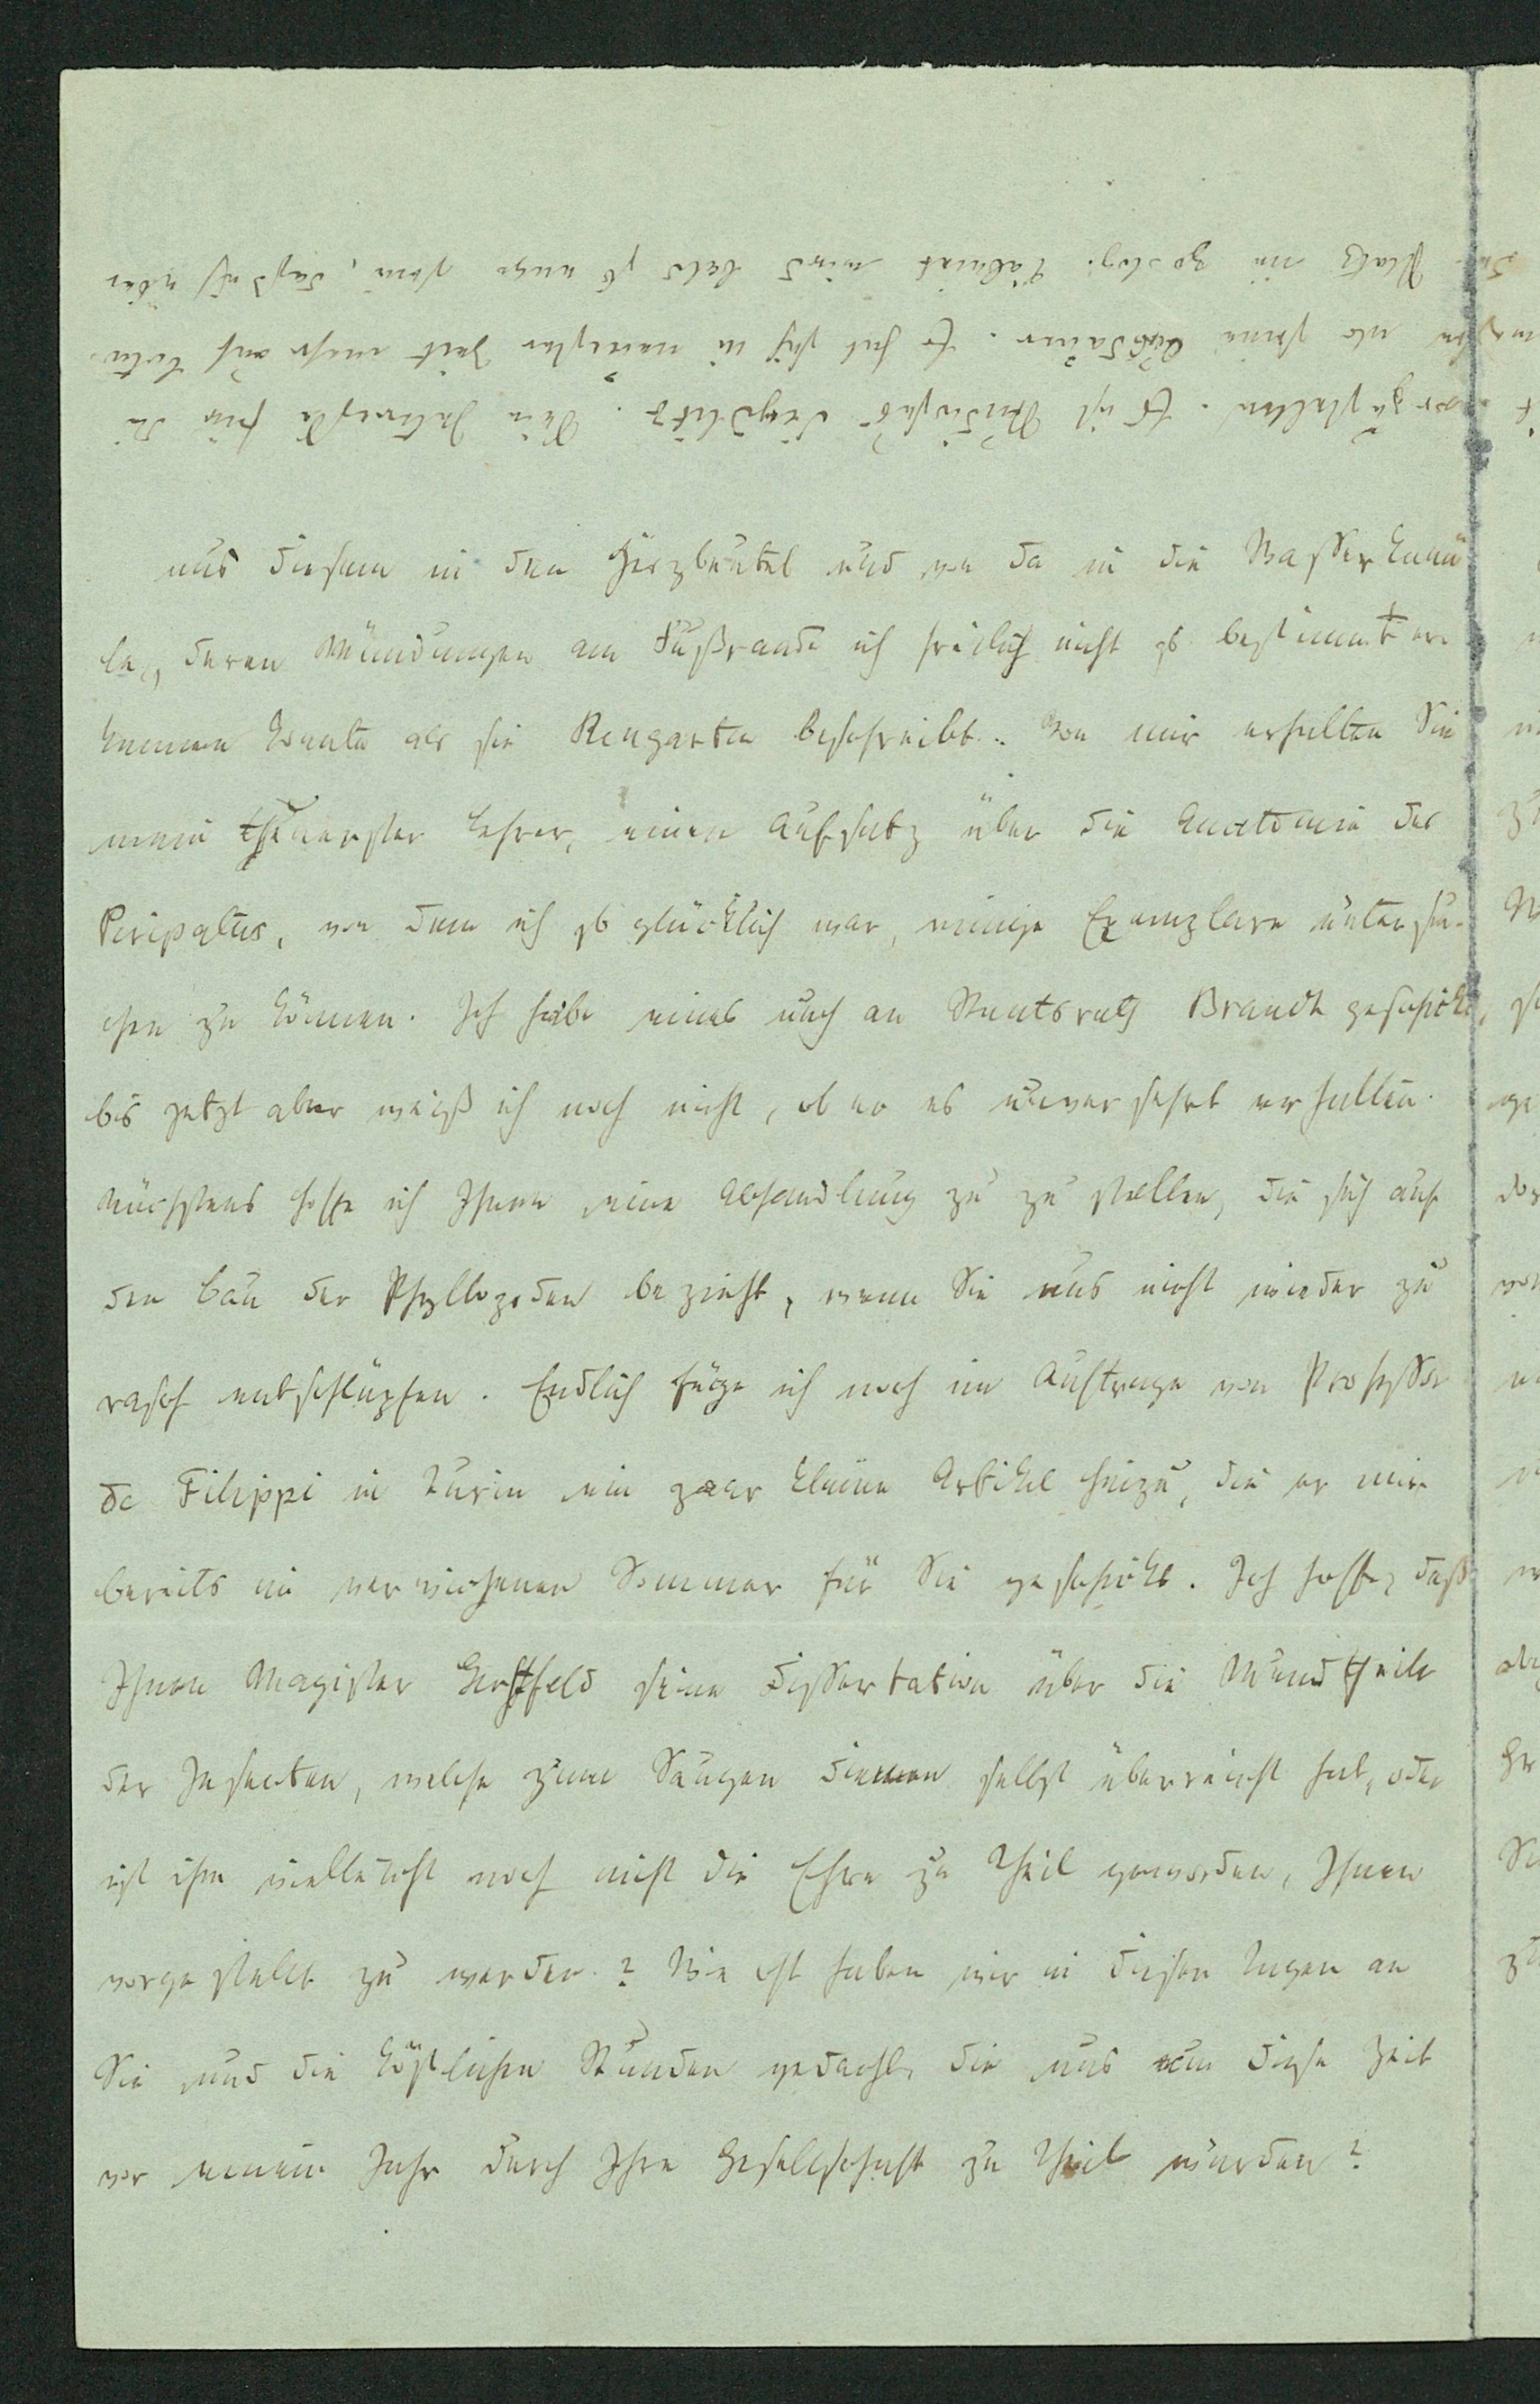 vorzustellen. Es ist Studiosus Seydlitz. Sein Interesse für die
als seine Ausdauer. Er hat sich in neuester Zeit mehr auf
Platz im zoolog. Cabinet wird bald so enge sein, daß ich über
aus diesem in den Herzbeutel und von da in die Wasserkanä-
le, deren Mündungen am Fußrande ich freilich nicht so bestimmt er-
kennen konnte als sie Rengarten beschreibt. Von mir erhalten Sie
mein theuerster Lehrer, einen Aufsatz über die Anatomie des
Peripatus, von dem ich so glücklich war, einige Exemplare untersu-
chen zu können. Ich habe eines auch an Staatsrath Brandt geschickt,
bis jetzt aber weiß ich noch nicht, ob er es unversehrt erhalten.
Nächstens hoffe ich Ihnen eine Abhandlung zu zu stellen, die sich auf
den Bau der Phyllopoden bezieht, wenn Sie uns nicht wieder zu
rasch entschlüpfen. Endlich füge ich noch im Auftrage von Professor
de Filippi in Turin ein paar kleine Artikel hinzu, die er mir
bereits im verwichenen Sommer für Sie geschickt. Ich hoffe, daß
Ihnen Magister Gerstfeld seine Dissertation über die Mundtheile
der Insecten, welche zum Saugen dienen selbst überreicht hat, oder
ist ihm vielleicht noch nicht die Ehre zu Theil geworden, Ihnen
vorgestellt zu werden? Wie oft haben wir in diesen Tagen an
Sie und die köstlichen Stunden gedacht, die uns um diese Zeit
vor einem Jahr durch Ihre Gesellschaft zu Theil wurden?